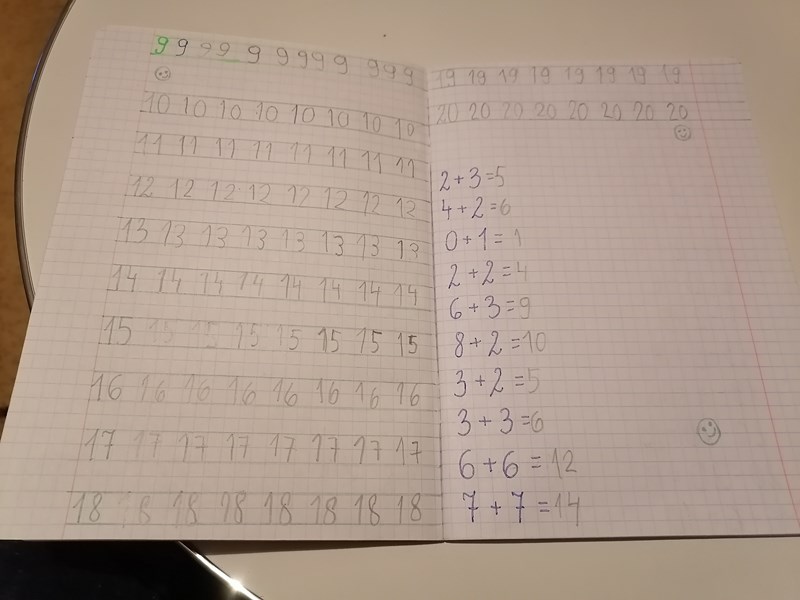 9 9 9 9 9 9 9 9 9 9 9 9
10 10 10 10 10 10 10 10
11 11 11 11 11 11 11 11
12 12 12 12 12 12 12 12
13 13 13 13 13 13 13 13
14 14 14 14 14 14 14 14
15 15 15 15 15 15 15 15
16 16 16 16 16 16 16 16
17 17 17 17 17 17 17 17
18 18 18 18 18 18 18 18
19 19 19 19 19 19 19 19
20 20 20 20 20 20 20 20
2+3=5
4+2=6
0+1=1
2+2=4
6+3=9
8+2=10
3+2=5
3+3=6
6+6=12
7+7=14